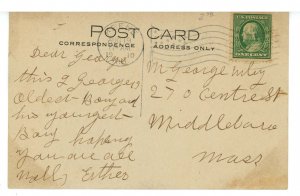 POST CARD
CORRESPONDENCE
ADDRESS ONLY
U.S. POSTAGE
ONE CENT
Dear George
this is George's
Oldest Boy and
his youngest
Boy hoping
you are all
well Esther
Mr George Wiley
270 Centre St
Middleboro
Mass